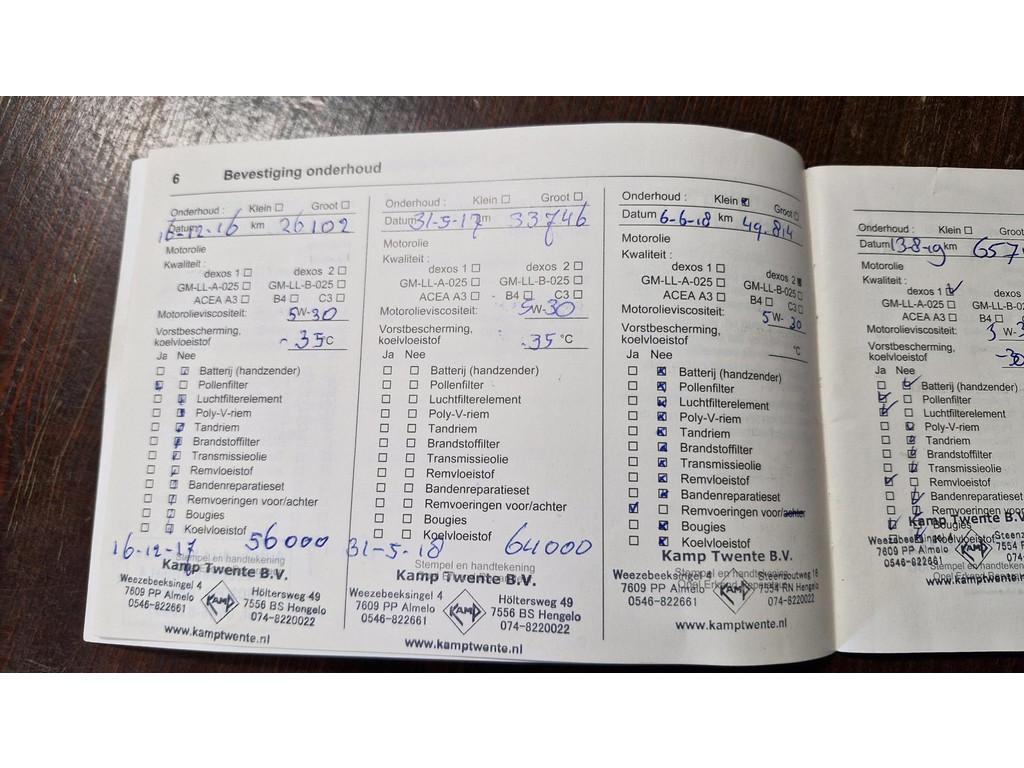 6 Bevestiging onderhoud
Onderhoud : Klein ☐ Groot ☐
Datum 16-12-16 km 26102
Motorolie
Kwaliteit :
dexos 1 ☐ dexos 2 ☐
GM-LL-A-025 ☐ GM-LL-B-025 ☐
ACEA A3 ☐ B4 ☐ C3 ☐
Motorolieviscositeit: 5W-30
Vorstbescherming,
koelvloeistof -35 °C
Ja Nee
Batterij (handzender)
Pollenfilter
Luchtfilterelement
Poly-V-riem
Tandriem
Brandstoffilter
Transmissieolie
Remvloeistof
Bandenreparatieset
Remvoeringen voor/achter
Bougies
Koelvloeistof
16-12-17 56000
Stempel en handtekening
Kamp Twente B.V.
Weezebeeksingel 4
7609 PP Almelo
0546-822661
KAMP
Höltersweg 49
7556 BS Hengelo
074-8220022
www.kamptwente.nl
Onderhoud : Klein ☐ Groot ☐
Datum 31-5-17 km 33746
Motorolie
Kwaliteit :
dexos 1 ☐ dexos 2 ☐
GM-LL-A-025 ☐ GM-LL-B-025 ☐
ACEA A3 ☐ B4 ☐ C3 ☐
Motorolieviscositeit: 5W-30
Vorstbescherming,
koelvloeistof -35 °C
Ja Nee
Batterij (handzender)
Pollenfilter
Luchtfilterelement
Poly-V-riem
Tandriem
Brandstoffilter
Transmissieolie
Remvloeistof
Bandenreparatieset
Remvoeringen voor/achter
Bougies
Koelvloeistof
31-5-18 64000
Stempel en handtekening
Kamp Twente B.V.
Weezebeeksingel 4
7609 PP Almelo
0546-822661
KAMP
Höltersweg 49
7556 BS Hengelo
074-8220022
www.kamptwente.nl
Onderhoud : Klein ☒ Groot ☐
Datum 6-6-18 km 49.814
Motorolie
Kwaliteit :
dexos 1 ☐ dexos 2 ☒
GM-LL-A-025 ☐ GM-LL-B-025 ☐
ACEA A3 ☐ B4 ☐ C3 ☐
Motorolieviscositeit: 5W-30
Vorstbescherming,
koelvloeistof °C
Ja Nee
Batterij (handzender)
Pollenfilter
Luchtfilterelement
Poly-V-riem
Tandriem
Brandstoffilter
Transmissieolie
Remvloeistof
Bandenreparatieset
Remvoeringen voor/achter
Bougies
Koelvloeistof
Stempel en handtekening
Kamp Twente B.V.
Opel Erkend Reparateur
Weezebeeksingel 4
7609 PP Almelo
0546-822661
KAMP
Steenzoutweg 18
7554 RN Hengelo
074-8220022
www.kamptwente.nl
Onderhoud : Klein ☐ Groot
Datum 13-8-19 km 657
Motorolie
Kwaliteit :
dexos 1 ☑ dexos 2
GM-LL-A-025 ☐ GM-LL-B-02
ACEA A3 ☐ B4 ☐ C3
Motorolieviscositeit: W-3
Vorstbescherming,
koelvloeistof -30
Ja Nee
Batterij (handzender)
Pollenfilter
Luchtfilterelement
Poly-V-riem
Tandriem
Brandstoffilter
Transmissieolie
Remvloeistof
Bandenreparatieset
Remvoeringen voor/achter
Bougies
Koelvloeistof
Kamp Twente B.V
Weezebeeksingel 4
7609 PP Almelo
0546-822661
KAMP
Steenz
7554 R
074-8
www.kamptwente.n